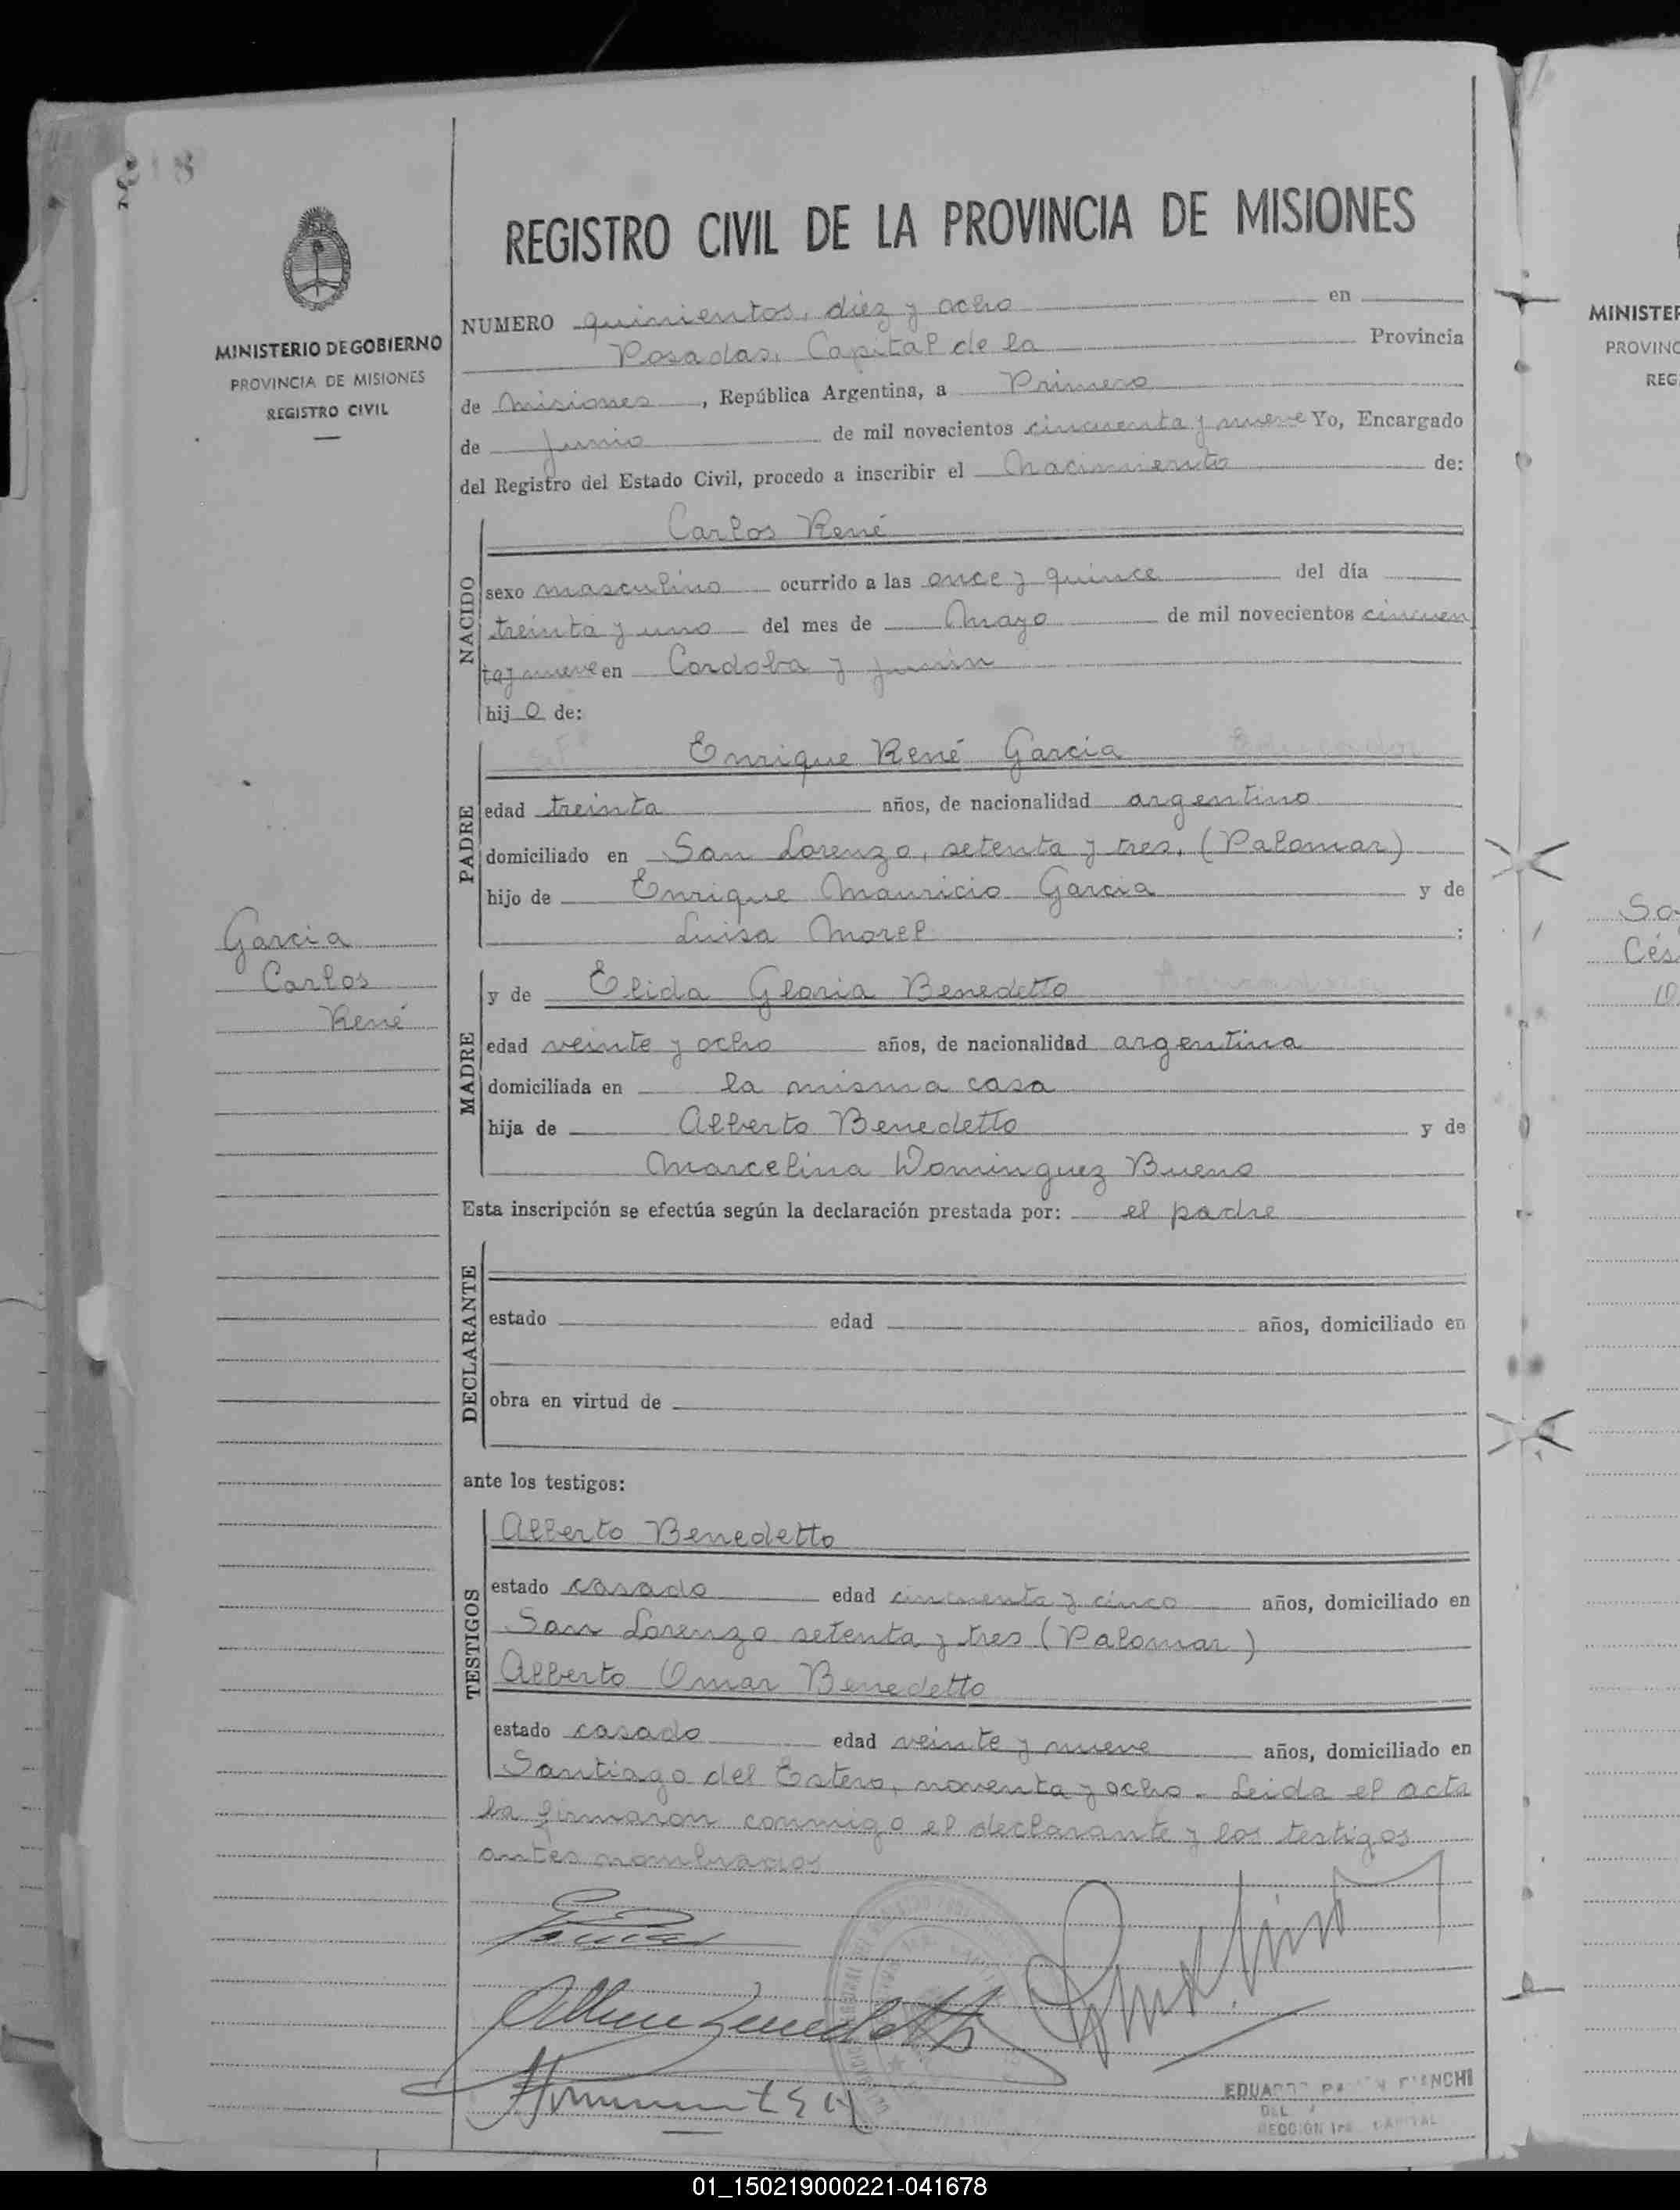 REGISTRO CIVIL DE LA PROVINCIA DE MISIONES
MINISTERIO DE GOBIERNO
PROVINCIA DE MISIONES
REGISTRO CIVIL
NUMERO quinientos, diez y ocho en
Posadas, Capital de la Provincia
de Misiones, República Argentina, a Primero
de Junio de mil novecientos cincuenta y nueve Yo, Encargado
del Registro del Estado Civil, procedo a inscribir el Nacimiento de:
NACIDO
Carlos René
sexo masculino ocurrido a las once y quince del día
treinta y uno del mes de Mayo de mil novecientos cincuen
ta y nueve en Cordoba y Junin
hijo de:
PADRE
Enrique René Garcia
edad treinta años, de nacionalidad argentino
domiciliado en San Lorenzo, setenta y tres, (Palomar)
hijo de Enrique Mauricio Garcia y de
Luisa Morel :
Garcia
Carlos
René
MADRE
y de Elida Gloria Benedetto
edad veinte y ocho años, de nacionalidad argentina
domiciliada en la misma casa
hija de Alberto Benedetto y de
Marcelina Dominguez Bueno
Esta inscripción se efectúa según la declaración prestada por: el padre
DECLARANTE
estado edad años, domiciliado en
obra en virtud de
ante los testigos:
TESTIGOS
Alberto Benedetto
estado casado edad cincuenta y cinco años, domiciliado en
San Lorenzo setenta y tres (Palomar)
Alberto Omar Benedetto
estado casado edad veinte y nueve años, domiciliado en
Santiago del Estero, noventa y ocho. Leida el acta
la firmaron conmigo el declarante y los testigos
antes nombrados
EDUARDO BIANCHI
SECCIÓN 1ra. CAPITAL
MINISTER
PROVINC
REG
Cés
01_150219000221-041678